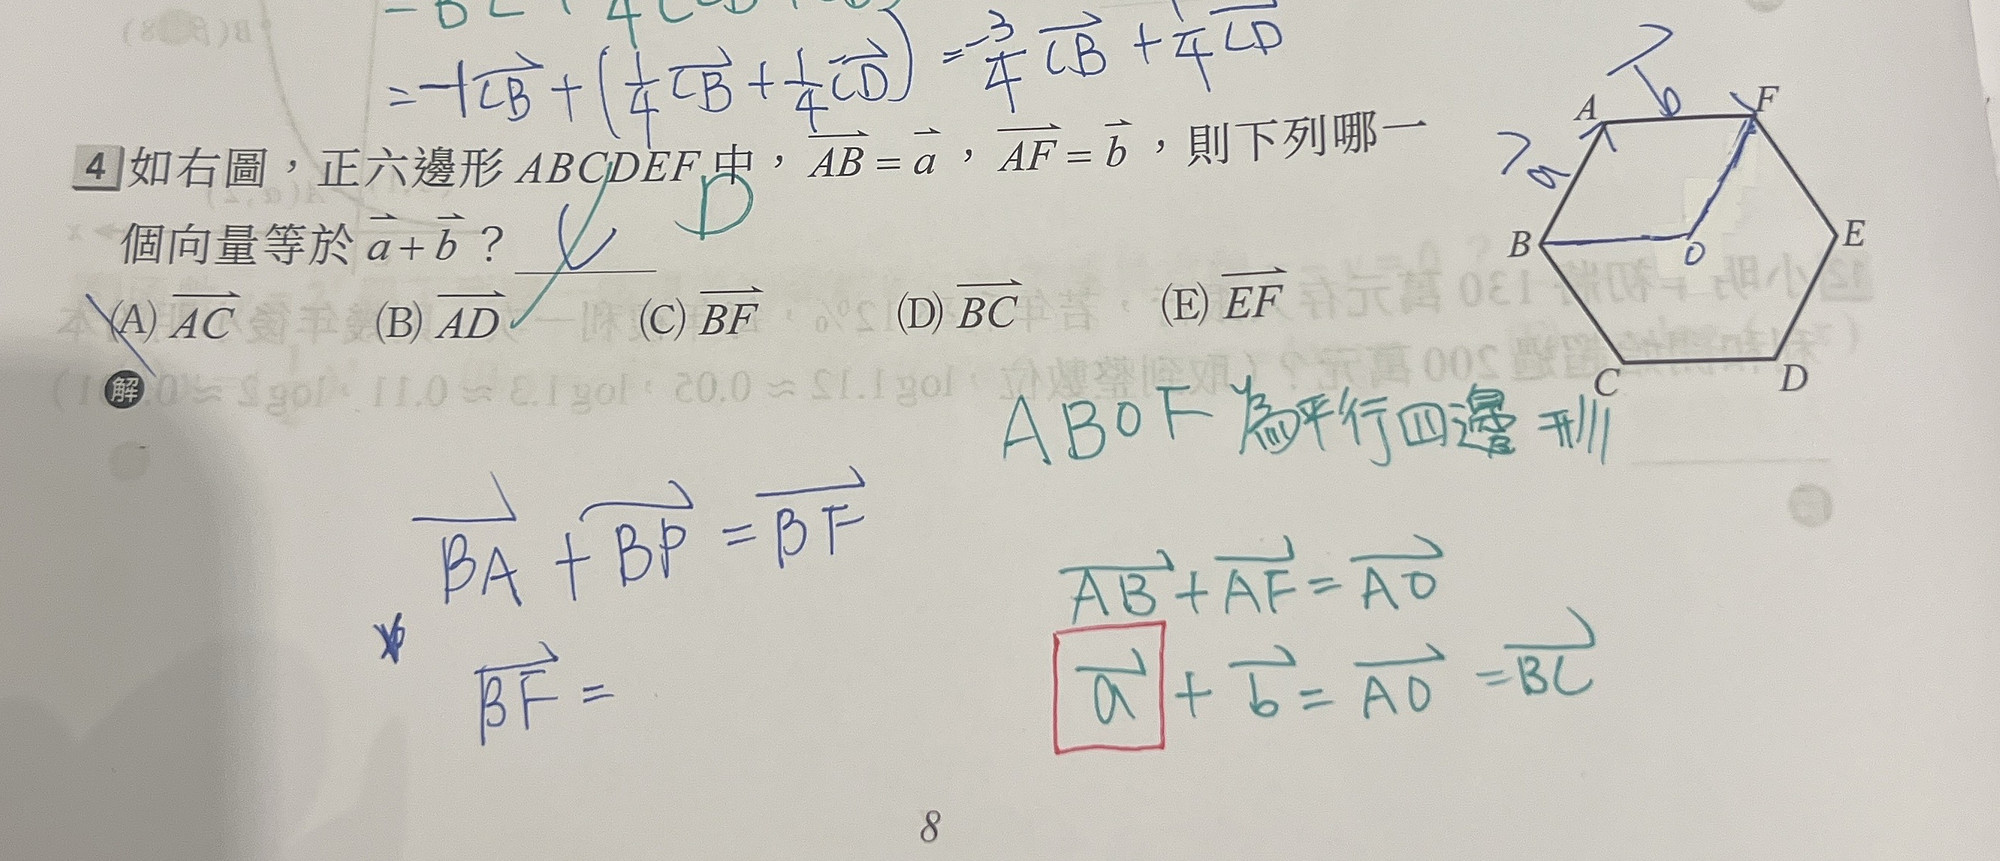 = -1CB + (1/4 CB + 1/4 CD) = -3/4 CB + 1/4 CD
4 如右圖，正六邊形 ABCDEF 中，AB = a，AF = b，則下列哪一
個向量等於 a + b？
D
(A) AC (B) AD (C) BF (D) BC (E) EF
解
A b F
a
B O E
C D
ABOF 為平行四邊形
BA + BP = BF
AB + AF = AO
BF =
a + b = AO = BC
8